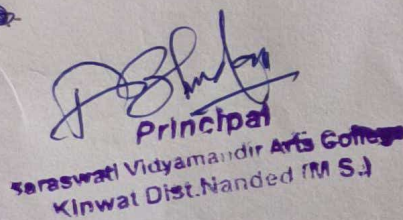 Principal
Saraswati Vidyamandir Arts College
Kinwat Dist.Nanded (M S.)